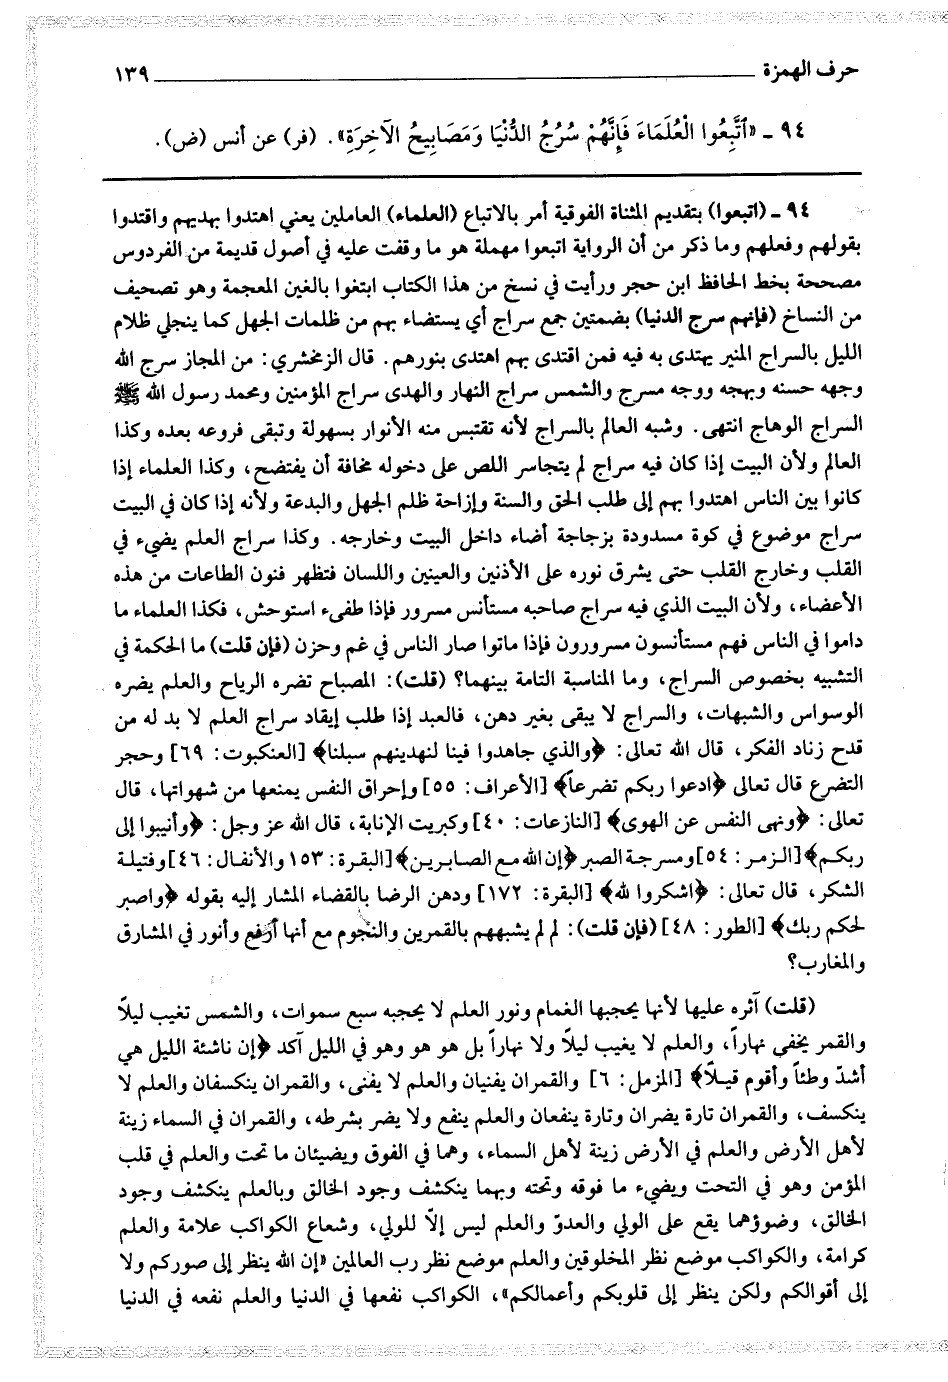 حرف الهمزة ١٣٩
٩٤ ـ «ٱتَّبِعُوا الْعُلَمَاءَ فَإِنَّهُمْ سُرُجُ الدُّنْيَا وَمَصَابِيحُ الآخِرَةِ». (فر) عن أنس (ض).
٩٤ ـ (اتبعوا) بتقديم المثناة الفوقية أمر بالاتباع (العلماء) العاملين يعني اهتدوا بهديهم واقتدوا
بقولهم وفعلهم وما ذكر من أن الرواية اتبعوا مهملة هو ما وقفت عليه في أصول قديمة من الفردوس
مصححة بخط الحافظ ابن حجر ورأيت في نسخ من هذا الكتاب ابتغوا بالغين المعجمة وهو تصحيف
من النساخ (فإنهم سرج الدنيا) بضمتين جمع سراج أي يستضاء بهم من ظلمات الجهل كما ينجلي ظلام
الليل بالسراج المنير يهتدى به فيه فمن اقتدى بهم اهتدى بنورهم. قال الزمخشري: من المجاز سرج الله
وجهه حسنه وبهجه ووجه مسرج والشمس سراج النهار والهدى سراج المؤمنين ومحمد رسول الله ﷺ
السراج الوهاج انتهى. وشبه العالم بالسراج لأنه تقتبس منه الأنوار بسهولة وتبقى فروعه بعده وكذا
العالم ولأن البيت إذا كان فيه سراج لم يتجاسر اللص على دخوله مخافة أن يفتضح، وكذا العلماء إذا
كانوا بين الناس اهتدوا بهم إلى طلب الحق والسنة وإزاحة ظلم الجهل والبدعة ولأنه إذا كان في البيت
سراج موضوع في كوة مسدودة بزجاجة أضاء داخل البيت وخارجه. وكذا سراج العلم يضيء في
القلب وخارج القلب حتى يشرق نوره على الأذنين والعينين واللسان فتظهر فنون الطاعات من هذه
الأعضاء، ولأن البيت الذي فيه سراج صاحبه مستأنس مسرور فإذا طفىء استوحش، فكذا العلماء ما
داموا في الناس فهم مستأنسون مسرورون فإذا ماتوا صار الناس في غم وحزن (فإن قلت) ما الحكمة في
التشبيه بخصوص السراج، وما المناسبة التامة بينهما؟ (قلت): المصباح تضره الرياح والعلم يضره
الوسواس والشبهات، والسراج لا يبقى بغير دهن، فالعبد إذا طلب إيقاد سراج العلم لا بد له من
قدح زناد الفكر، قال الله تعالى: ﴿والذي جاهدوا فينا لنهدينهم سبلنا﴾ [العنكبوت: ٦٩] وحجر
التضرع قال تعالى ﴿ادعوا ربكم تضرعاً﴾ [الأعراف: ٥٥] وإحراق النفس يمنعها من شهواتها، قال
تعالى: ﴿ونهى النفس عن الهوى﴾ [النازعات: ٤٠] وكبريت الإنابة، قال الله عز وجل: ﴿وأنيبوا إلى
ربكم﴾ [الزمر: ٥٤] ومسرجة الصبر ﴿إن الله مع الصابرين﴾ [البقرة: ١٥٣ والأنفال: ٤٦] وفتيلة
الشكر، قال تعالى: ﴿اشكروا لله﴾ [البقرة: ١٧٢] ودهن الرضا بالقضاء المشار إليه بقوله ﴿واصبر
لحكم ربك﴾ [الطور: ٤٨] (فإن قلت): لم لم يشبههم بالقمرين والنجوم مع أنها أرفع وأنور في المشارق
والمغارب؟
(قلت) آثره عليها لأنها يحجبها الغمام ونور العلم لا يحجبه سبع سموات، والشمس تغيب ليلاً
والقمر يخفي نهاراً، والعلم لا يغيب ليلاً ولا نهاراً بل هو هو وهو في الليل آكد ﴿إن ناشئة الليل هي
أشدّ وطئاً وأقوم قيلاً﴾ [المزمل: ٦] والقمران يفنيان والعلم لا يفنى، والقمران ينكسفان والعلم لا
ينكسف، والقمران تارة يضران وتارة ينفعان والعلم ينفع ولا يضر بشرطه، والقمران في السماء زينة
لأهل الأرض والعلم في الأرض زينة لأهل السماء، وهما في الفوق ويضيئان ما تحت والعلم في قلب
المؤمن وهو في التحت ويضيء ما فوقه وتحته وبهما ينكشف وجود الخالق وبالعلم ينكشف وجود
الخالق، وضوؤهما يقع على الولي والعدوّ والعلم ليس إلّا للولي، وشعاع الكواكب علامة والعلم
كرامة، والكواكب موضع نظر المخلوقين والعلم موضع نظر رب العالمين «إن الله ينظر إلى صوركم ولا
إلى أقوالكم ولكن ينظر إلى قلوبكم وأعمالكم»، الكواكب نفعها في الدنيا والعلم نفعه في الدنيا